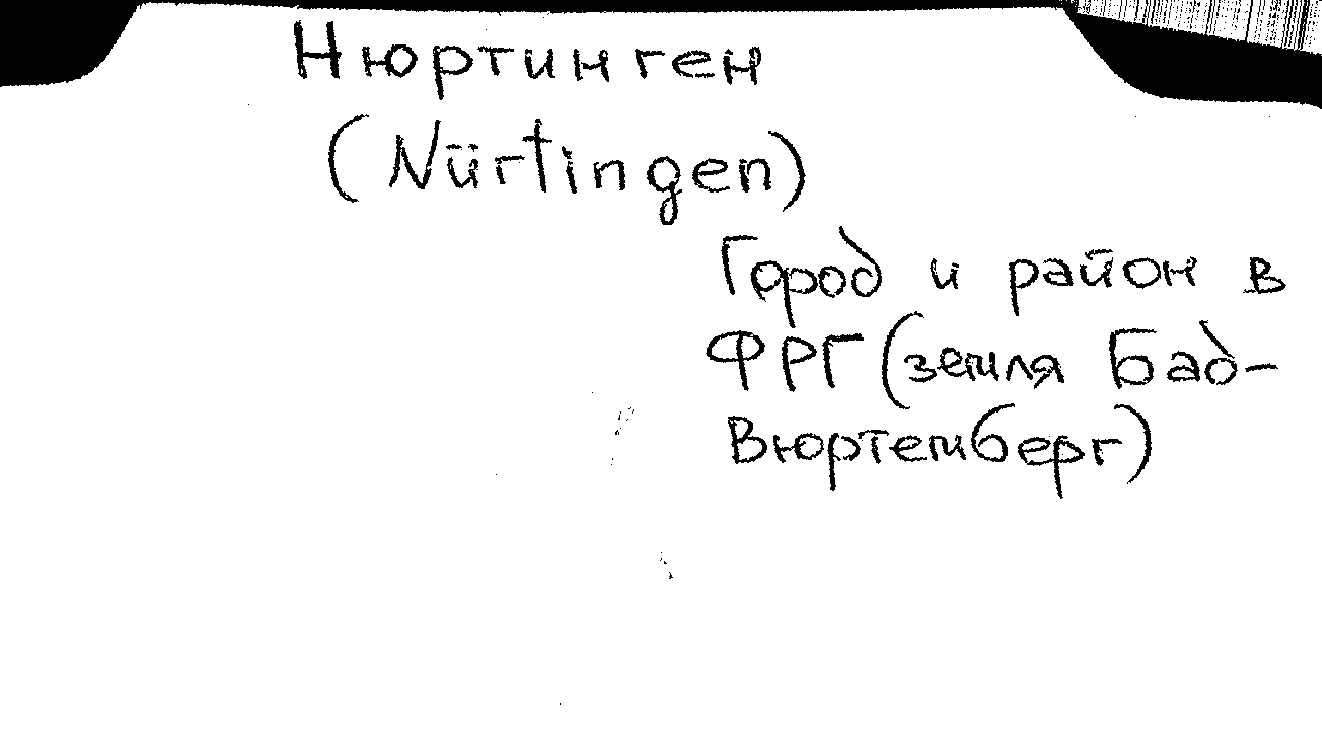 Нюртинген
(Nürtingen)
Город и район в
ФРГ (земля Бад-
Вюртемберг)